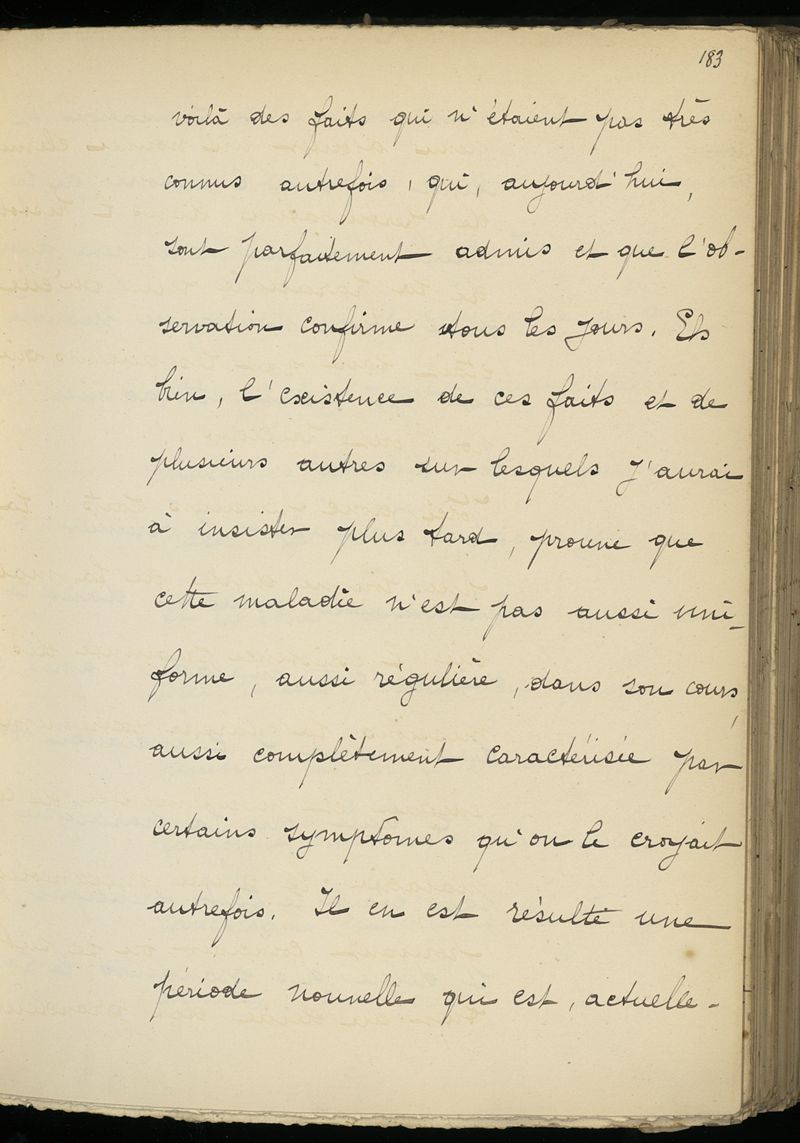 183
voilà des faits qui n'étaient pas très
connus autrefois, qui, aujourd'hui,
sont parfaitement admis et que l'ob-
servation confirme tous les jours. Eh
bien, l'existence de ces faits et de
plusieurs autres sur lesquels j'aurai
à insister plus tard, prouve que
cette maladie n'est pas aussi uni-
forme, aussi régulière, dans son cours,
aussi complètement caractérisée par
certains symptomes qu'on le croyait
autrefois. Il en est résulté une
période nouvelle qui est, actuelle-